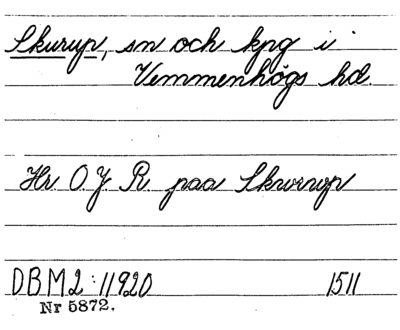 Skurup, sn och kpg i
Vemmenhögs hd.
Hr. O. J R. paa Skurup
DBM2:11920 1511
Nr 5872.